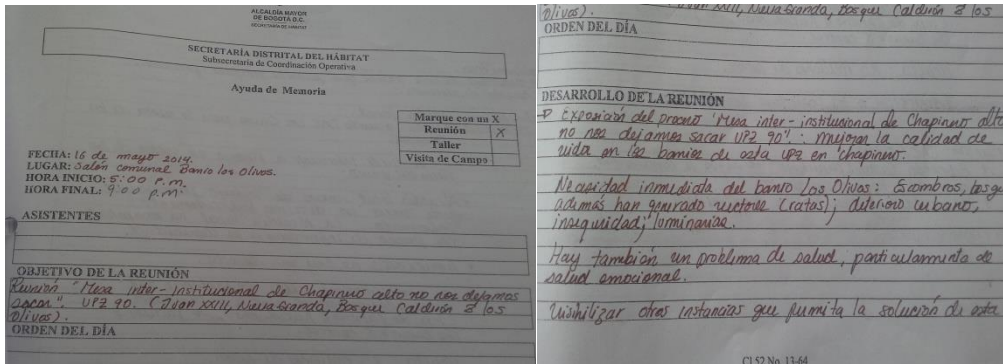 ALCALDÍA MAYOR
DE BOGOTÁ D.C.
SECRETARÍA DISTRITAL DEL HÁBITAT
Subsecretaría de Coordinación Operativa
Ayuda de Memoria
Marque con un X
Reunión X
Taller
Visita de Campo
FECHA: 16 de mayo 2014.
LUGAR: Salón comunal Barrio los Olivos.
HORA INICIO: 5:00 P.m.
HORA FINAL: 9:00 p.m.
ASISTENTES
OBJETIVO DE LA REUNIÓN
Reunión "Mesa inter-Institucional de Chapinero alto no nos dejamos
sacar". UPZ 90. (Juan XXIII, Nueva Granda, Bosque Calderón & los
Olivos).
ORDEN DEL DÍA
Juan XXIII, Nueva Granda, Bosque Calderón & los
Olivos).
ORDEN DEL DÍA
DESARROLLO DE LA REUNIÓN
Exposición del proceso "Mesa inter-institucional de Chapinero alto
no nos dejamos sacar UPZ 90": mejorar la calidad de
vida en los barrios de esta UPZ en chapinero.
Necesidad inmediata del barrio Los Olivos: Escombros,
además han generado vectores (ratas); deterioro urbano,
inseguridad; luminarias.
Hay también un problema de salud, particularmente de
salud emocional.
Visibilizar otras instancias que permita la solución de esta
Cl 52 No. 13-64